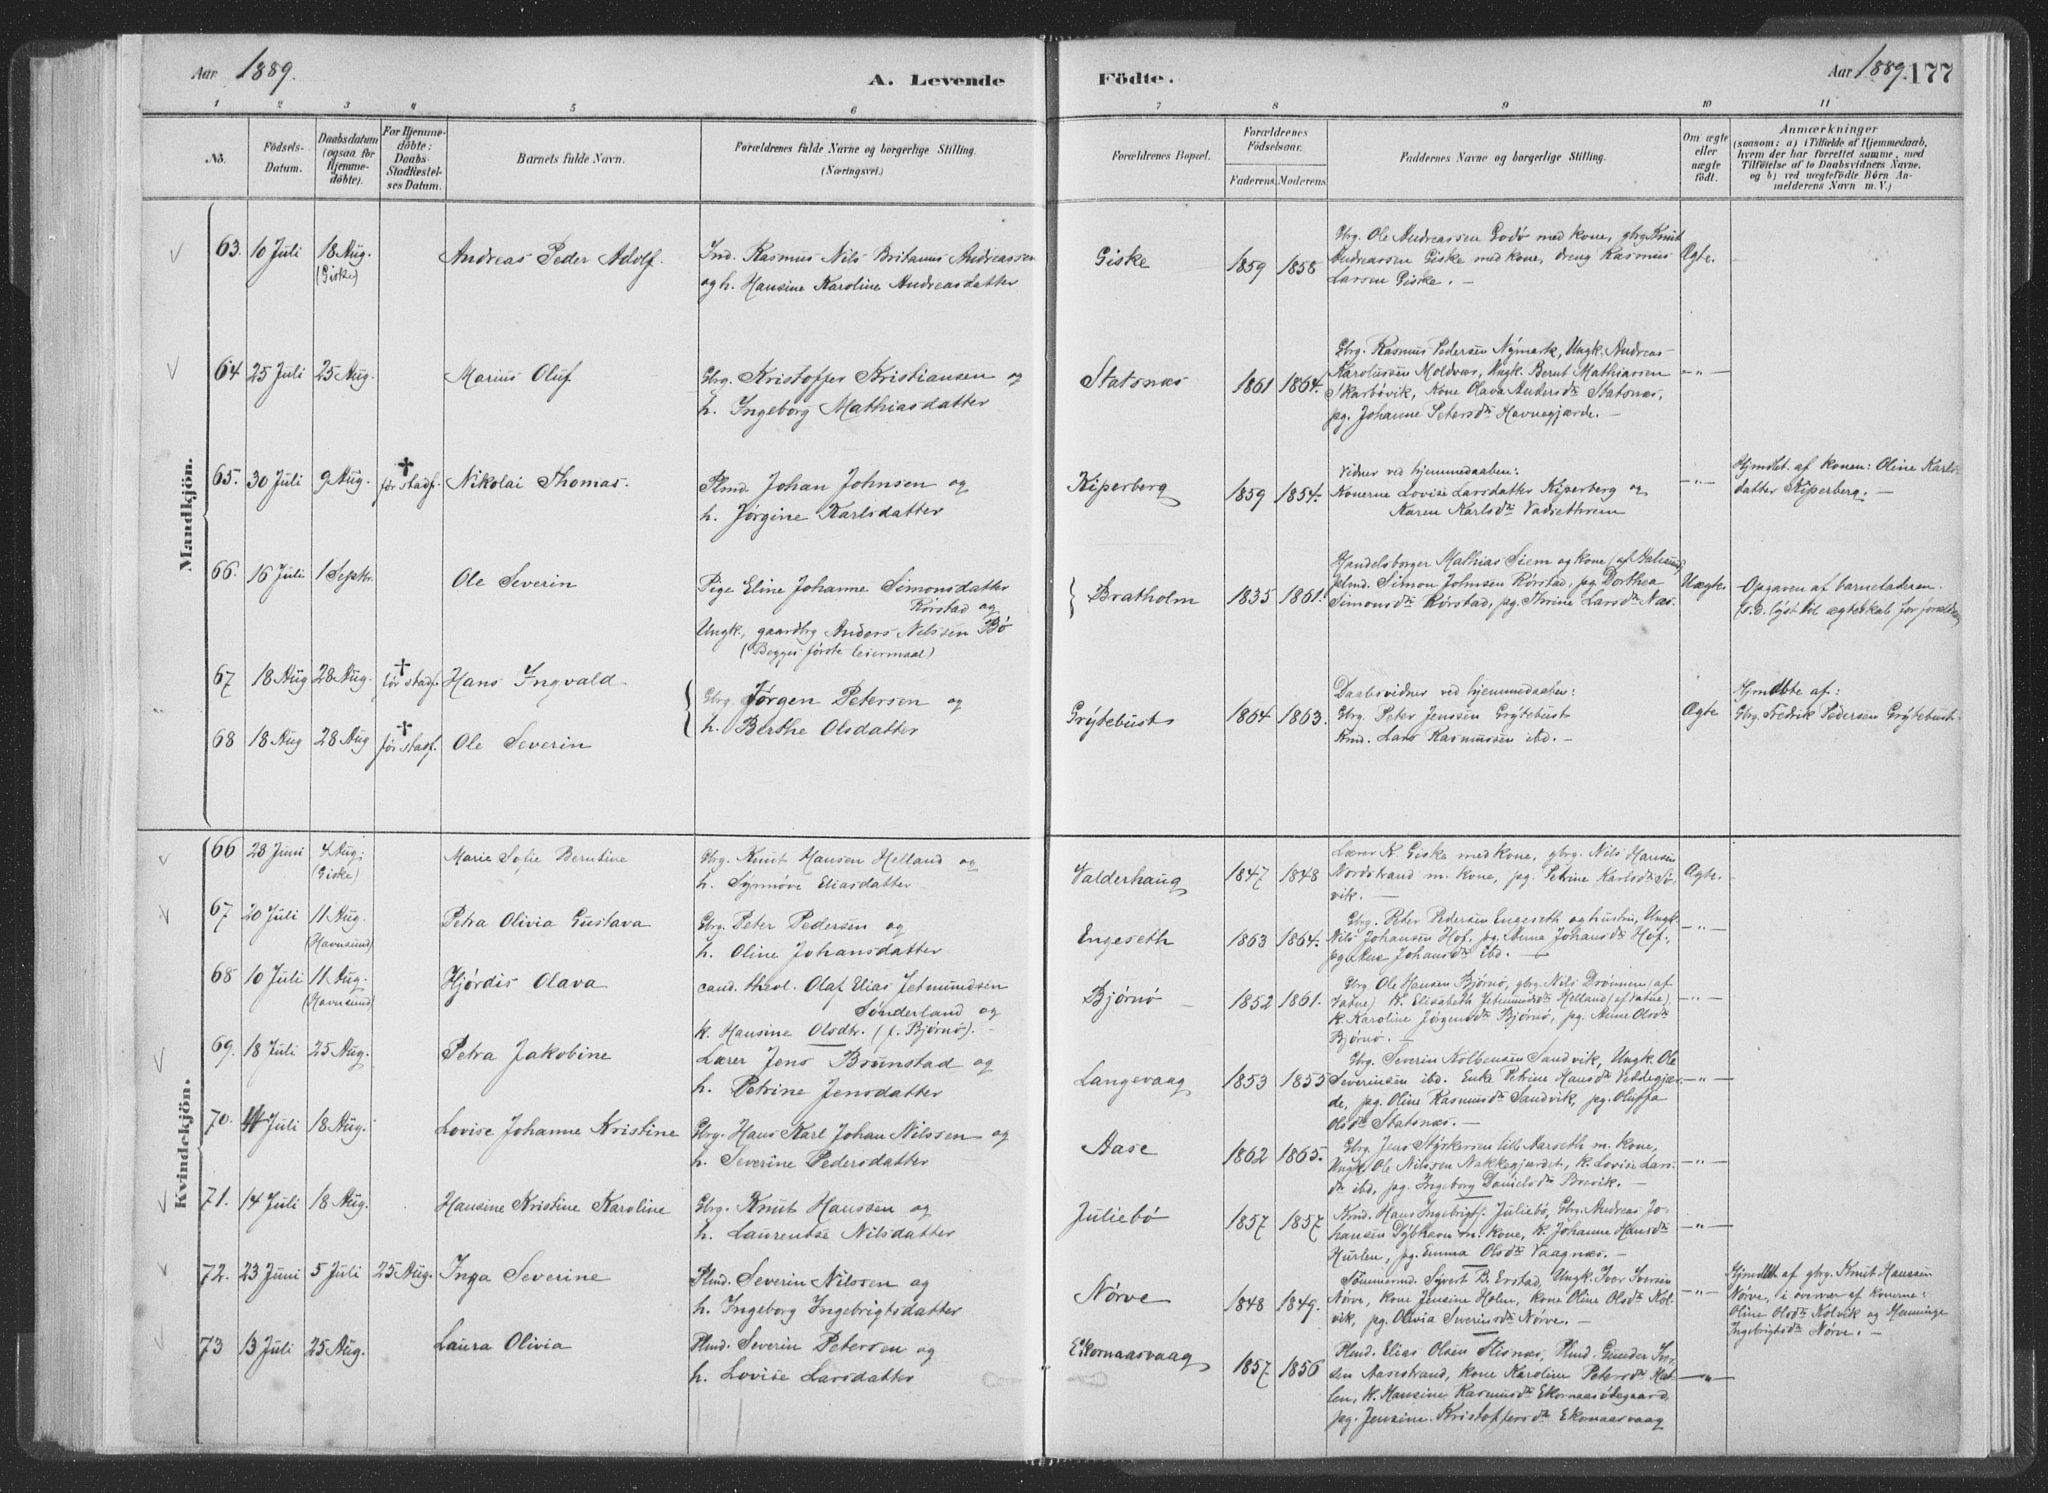 Aar 1889.
A. Levende
Födte.
Aar 1889. 177
1 2 3 4 5 6 7 8 9 10 11
No.
Födsels-Datum.
Daabsdatum (ogsaa for Hjemme-döbte).
For Hjemme-döbte: Daabs-Stadfæstelses Datum.
Barnets fulde Navn.
Forældrenes fulde Navne og borgerlige Stilling.
(Næringsvei.)
Forældrenes Bopæl.
Forældrenes Födselsaar.
Faderens. Moderens.
Faddernes Navne og borgerlige Stilling.
Om ægte eller uægte födt.
Anmærkninger
(saasom: a) i Tilfælde af Hjemmedaab,
hvem der har forrettet samme, med
Tilföielse af to Daabsvidners Navne.
og b) ved uægtefödte Börn An-
melderens Navn m. V.)
Mandkjön.
63. 10 Juli 18 Aug. (Giske) Andreas Peder Adolf.
Ind. Rasmus Nils Britanus Andreassen
og h. Hansine Karoline Andreasdatter
Giske 1859 1858
Gbrg. Ole Andreassen Godø med kone, gbrg Knut
Andreassen Giske med kone, dreng Rasmus
Larsen Giske. —
Ægte.
64 25 Juli 25 Aug. Marius Oluf
Gbrg. Kristoffer Kristiansen og
h. Ingeborg Mathiasdatter
Statsnæs 1861 1864.
Gbrg. Rasmus Pedersen Nymark, Ungk. Andreas
Karolussen Moldvær, Ungk. Bernt Mathiassen
Skarbøvik, Kone Olava Andersdr Statsnæs,
pg. Johanne Petersdr Havnegjærde. —
— " —
65. 30 Juli 9 Aug. † før stadf. Nikolai Thomas.
Plmd. Johan Johnsen og
h. Jørgine Karlsdatter
Kiperberg 1859 1854.
Vidner ved hjemmedaaben:
Konerne Lovise Larsdatter Kiperberg og
Karen Karlsdr
— " —
Hjmdbt. af konen: Oline Karls-
datter Kiperberg. —
66. 16 Juli 1 Septbr. Ole Severin
Pige Eline Johanne Simonsdatter
Rørstad og
Ungk., gaardbrg Anders Nilssen Bø
(Begges første leiermaal)
Bratholm 1835 1861.
Handelsborger Mathias Siem og kone (af Aalesund)
plmd. Simon Johnsen Rørstad, pg Dorthea
Simonsdr Rørstad, pg. Thrine Larsdr Næs.
Uægte.
Opgaven af barnefaderen.
lyst til ægteskab for forældrene
67 18 Aug 28 Aug. † før stadf. Hans Ingvald
68 18 Aug 28 Aug † før stadf. Ole Severin
Gbrg. Jørgen Petersen og
h. Berthe Olsdatter
Grytebust 1864 1863.
Daabsvidner ved hjemmedaaben:
Gbrg. Peter Jenssen Grytebust
Kmd. Lars Rasmussen ibd. —
Ægte
Hjmdbte af:
Gbrg. Fredrik Pedersen Grytebust.
Kvindekjön.
66 28 Juni 4 Aug. (Giske) Marie Sofie Berntine
Gbrg. Knut Hansen Helland og
h. Synnøve Eliasdatter
Valderhaug 1847 1848
Lærer K. Giske med kone, gbrg. Nils Hansen
Nordstrand m. kone, pg. Petrine Karlsdr Sø-
vik. —
Ægte.
67 20 Juli 11 Aug. (Havnsund) Petra Olivia Gustava
Gbrg. Peter Pedersen og
h. Oline Johansdatter
Engeseth 1863 1864.
Gbrg. Peter Pedersen Engeseth og hustru, Ungk.
Nils Johansen Hof, pg. Anna Johansdr Hof,
pg Ane Johansdr ibd. —
— " —
68 10 Juli 11 Aug. (Havnsund) Hjørdis Olava
cand. theol. Olaf Elias Jetmundsen
Sønderland og
k. Hansine Olsdtr. (f. Bjørnø). —
Bjørnø 1852 1861.
Gbrg. Ole Hansen Bjørnø, gbrg. Nils Drønnen (af
Vatne) K. Elisabeth Jetmundsdr Helland (af Vatne),
k. Karoline Jørgensdr Bjørnø, pg. Anne Olsdr
Bjørnø. —
— " —
69. 18 Juli 25 Aug. Petra Jakobine
Lærer Jens Brunstad og
h. Petrine Jensdatter
Langevaag 1853 1855
Gbrg. Severin Kolbensen Sandvik, Ungk. Ole
Severinsen ibd. Enke Petrine Hansdr Veddegjær-
de, pg. Oline Rasmusdr Sandvik, pg. Oluffa
Olsdr Statsnæs. —
— " —
70. 14 Juli 18 Aug. Lovise Johanne Kristine
Gbrg. Hans Karl Johan Nilssen og
h. Severine Pedersdatter
Aase 1862 1865.
Gbrg. Jens Styrkersen lille Aarseth m. kone,
Ungk Ole Nilssen Nakkegjærdet, k. Lovise Lars-
dr ibd, pg. Ingeborg Danielsdr Brevik. —
— " —
71. 14 Juli 18 Aug. Hansine Kristine Karoline
Gbrg. Knut Hanssen og
h. Laurentse Nilsdatter
Juliebø 1857 1857
Kmd. Hans Ingebrigts. Juliebø, Gbrg. Andreas Jo-
hansen Dybhavn m. kone, k. Johanne Hansdr
Hurlen, pg. Emma Olsdr Vaagnæs. —
— " —
72. 23 Juni 5 Juli 25 Aug. Inga Severine
Plmd. Severin Nilssen og
h. Ingeborg Ingebrigtsdatter
Nørve 1848 1849.
Tømmermd. Syvert B. Erstad, Ungk. Iver Iversen
Nørve, kone Jensine Holm, kone Oline Olsdr Kol-
vik, pg. Olivia Severinsdr Nørve. —
— " —
Hjmdbt af gbrg. Knut Hanssen
Nørve, i overvær af konerne:
Oline Olsdr Kolvik og Henninge
Ingebrigtsdr Nørve. —
73 13 Juli 25 Aug. Laura Olivia
Plmd. Severin Petersen og
h. Lovise Larsdatter
Ekornaasvaag 1857. 1856
Plmd. Elias Olsen Flisnæs, Plmd. Gunder Iver-
sen Aasestrand, kone Karoline Petersdr Hat-
len, k. Hansine Rasmusdr Ekornaasødegaard,
pg. Jensine Kristoffersdr Ekornaasvaag
— " —